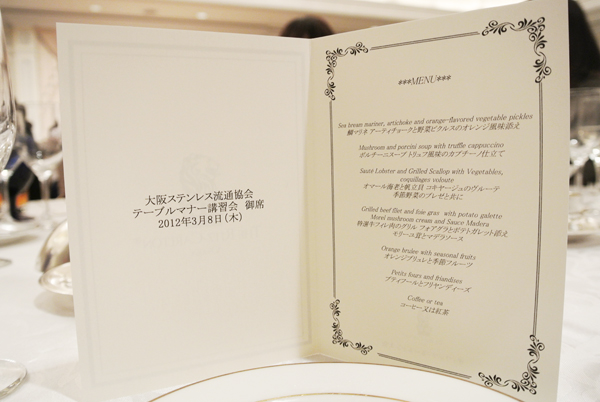 大阪ステンレス流通協会
テーブルマナー講習会 御席
2012年3月8日(木)
***MENU***
Sea bream mariner, artichoke and orange-flavored vegetable pickles
鯛マリネ アーティチョークと野菜ピクルスのオレンジ風味添え
Mushroom and porcini soup with truffle cappuccino
ポルチーニスープ トリュフ風味のカプチーノ仕立て
Sauté Lobster and Grilled Scallop with Vegetables,
coquillages veloute
オマール海老と帆立貝 コキヤージュのヴルーテ
季節野菜のブレゼと共に
Grilled beef filet and foie gras with potato galette
Morel mushroom cream and Sauce Madera
特選牛フィレ肉のグリル フォアグラとポテトガレット添え
モリーユ茸とマデラソース
Orange brulee with seasonal fruits
オレンジブリュレと季節フルーツ
Petits fours and friandises
プティフールとフリヤンディーズ
Coffee or tea
コーヒー又は紅茶